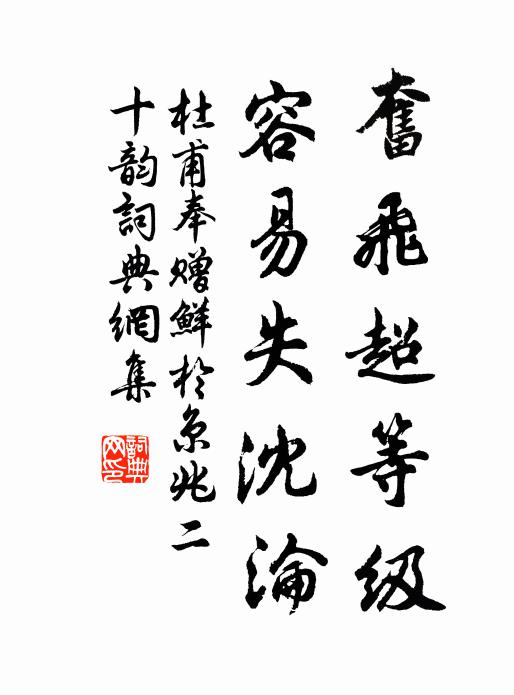 奮飛超等級
容易失沈淪
杜甫奉贈鮮於京兆二
十韵詞典網集
詞典網印